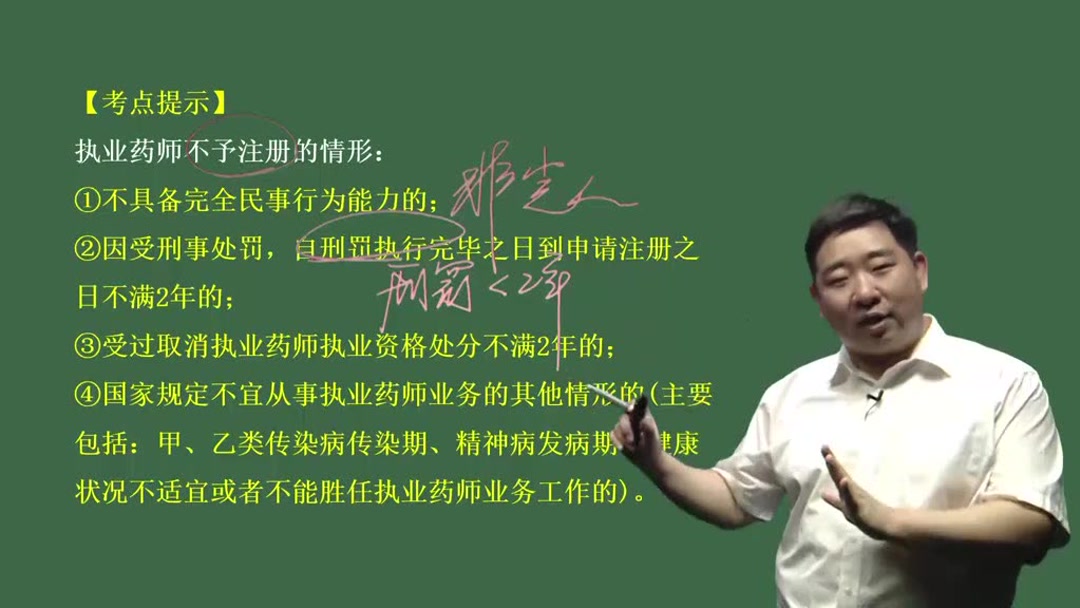 【考点提示】
执业药师不予注册的情形：
①不具备完全民事行为能力的；
②因受刑事处罚，自刑罚执行完毕之日到申请注册之
日不满2年的；
刑罚<2年
③受过取消执业药师执业资格处分不满2年的；
④国家规定不宜从事执业药师业务的其他情形的(主要
包括：甲、乙类传染病传染期、精神病发病期 健康
状况不适宜或者不能胜任执业药师业务工作的)。